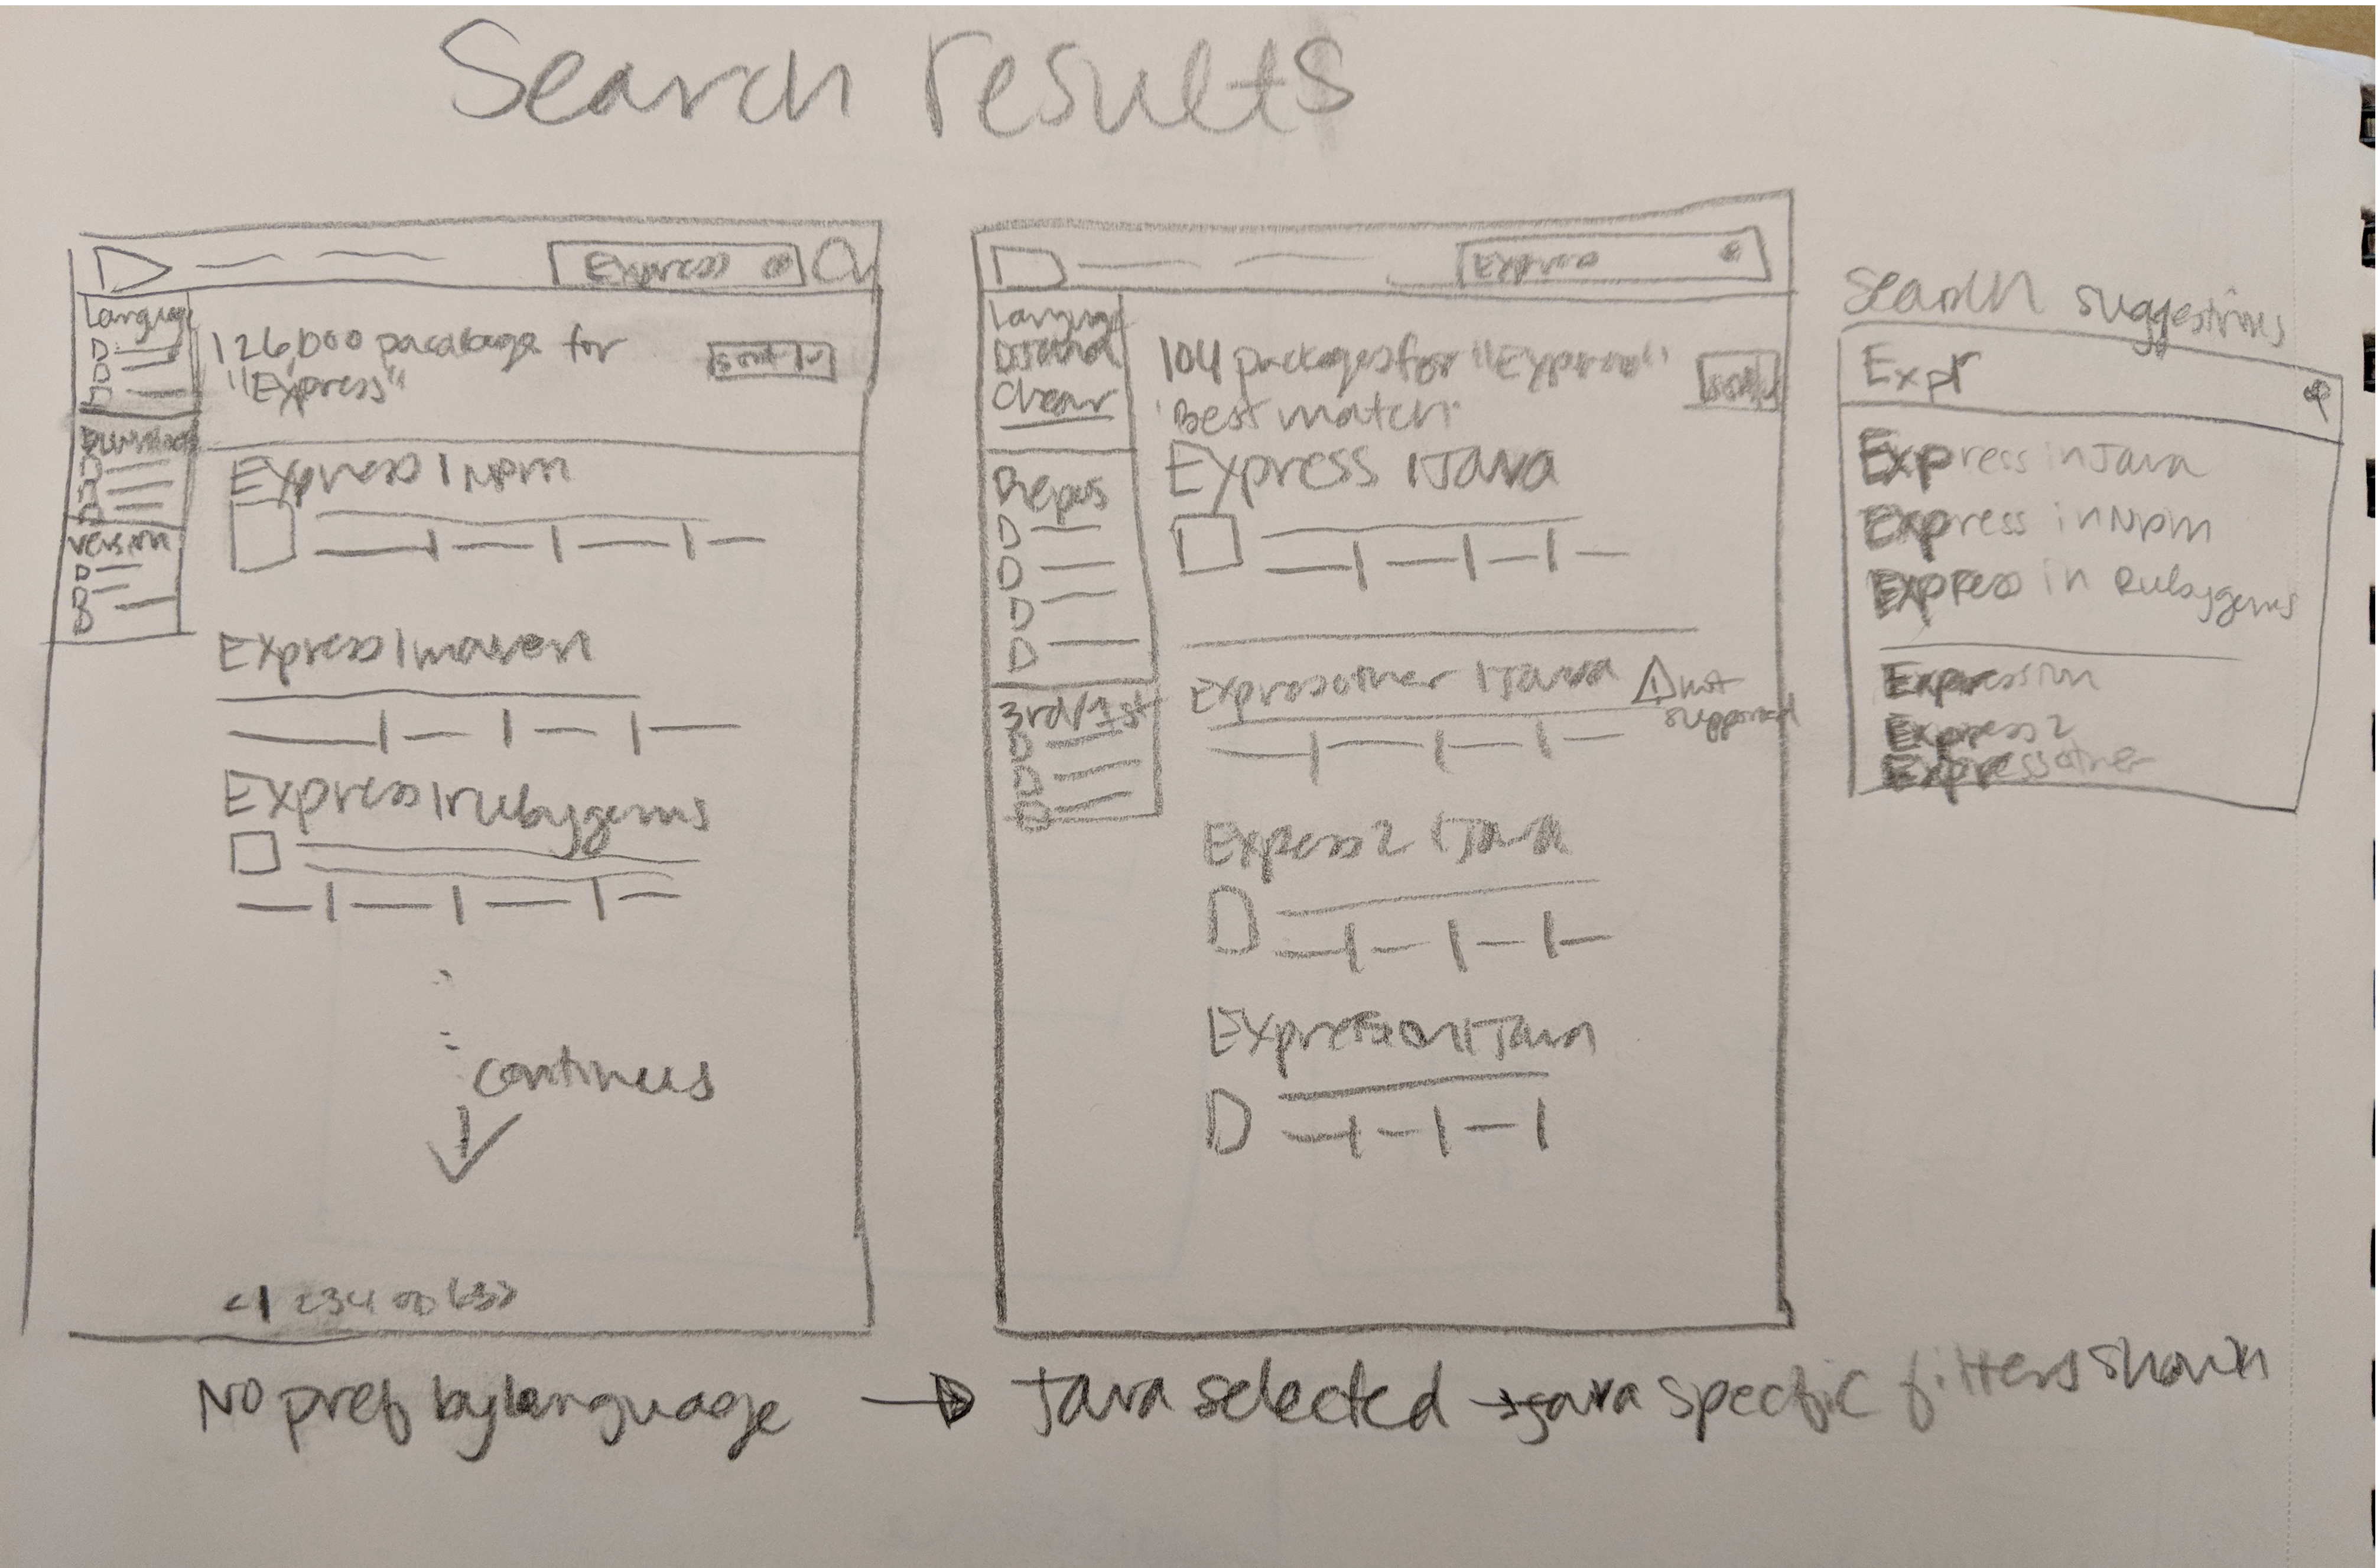 Search results
Express
Language
126,000 pacakage for
"Express"
sort
Downloads
Version
Express | Npm
Express | maven
Express | rubygems
continues
<1 234
No pref by language
Express
Language
Java
Clear
104 packages for "Express"
"Best match"
sort
Repos
3rd/1st
Express | Java
Expressother | Java
not
supported
Express2 | Java
Expression | Java
Java selected → Java specific filters shown
Search suggestions
Expr
Express in Java
Express in Npm
Express in Rubygems
Expression
Express2
Expressother